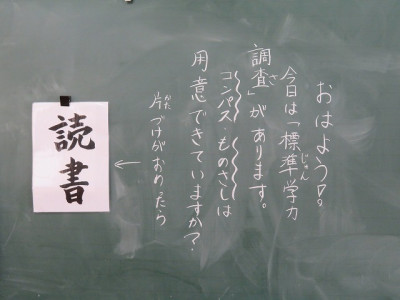 おはよう。
今日は「標準学力
じゅん
調査」があります。
さ
コンパス・ものさしは
用意できていますか?
片づけがおわったら
かた
読書